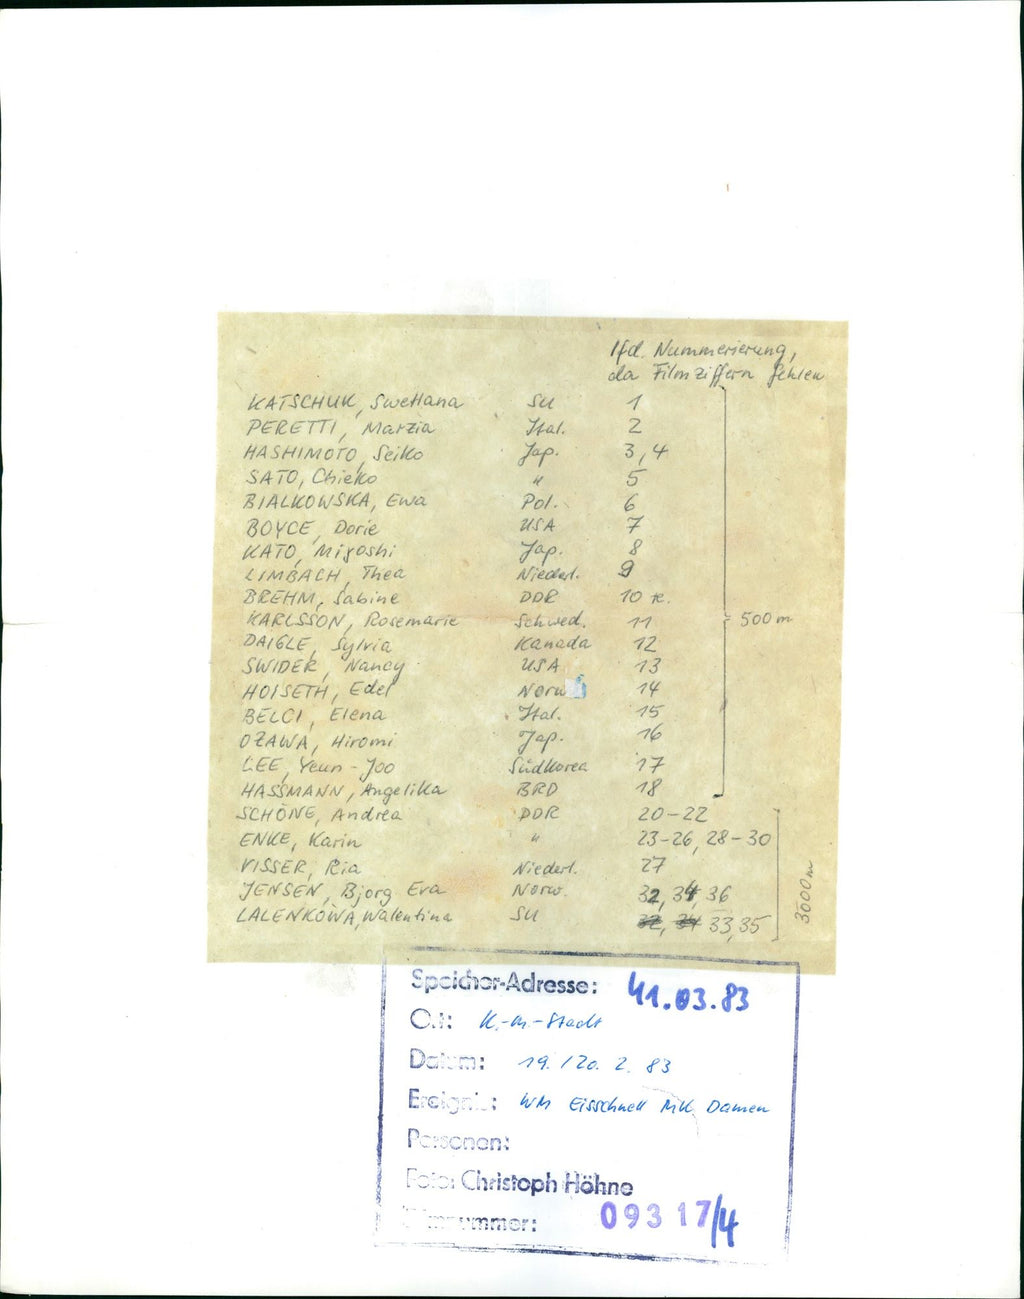 lfd. Nummerierung,
da Filmziffern fehlen
KATSCHUK, Swetlana SU 1
PERETTI, Marzia Ital. 2
HASHIMOTO, Seiko Jap. 3, 4
SATO, Chieko " 5
BIALKOWSKA, Ewa Pol. 6
BOYCE, Dorie USA 7
KATO, Miyoshi Jap. 8
LIMBACH, Thea Niederl. 9
BREHM, Sabine DDR 10 re.
KARLSSON, Rosemarie Schwed. 11
500m
DAIGLE, Sylvia Kanada 12
SWIDER, Nancy USA 13
HOISETH, Edel Norw 14
BELCI, Elena Ital. 15
OZAWA, Hiromi Jap. 16
LEE, Yeun-Joo Südkorea 17
HASSMANN, Angelika BRD 18
SCHÖNE, Andrea DDR 20-22
ENKE, Karin " 23-26, 28-30
VISSER, Ria Niederl. 27
JENSEN, Bjorg Eva Norw. 32, 34, 36
LALENKOWA, Walentina SU 32, 34 33, 35
3000m
Speicher-Adresse: 41.03.83
Ort: K.-M.-Stadt
Datum: 19./20. 2. 83
Ereignis: WM Eisschnell MK Damen
Personen:
Foto: Christoph Höhne
Filmnummer: 09317/4